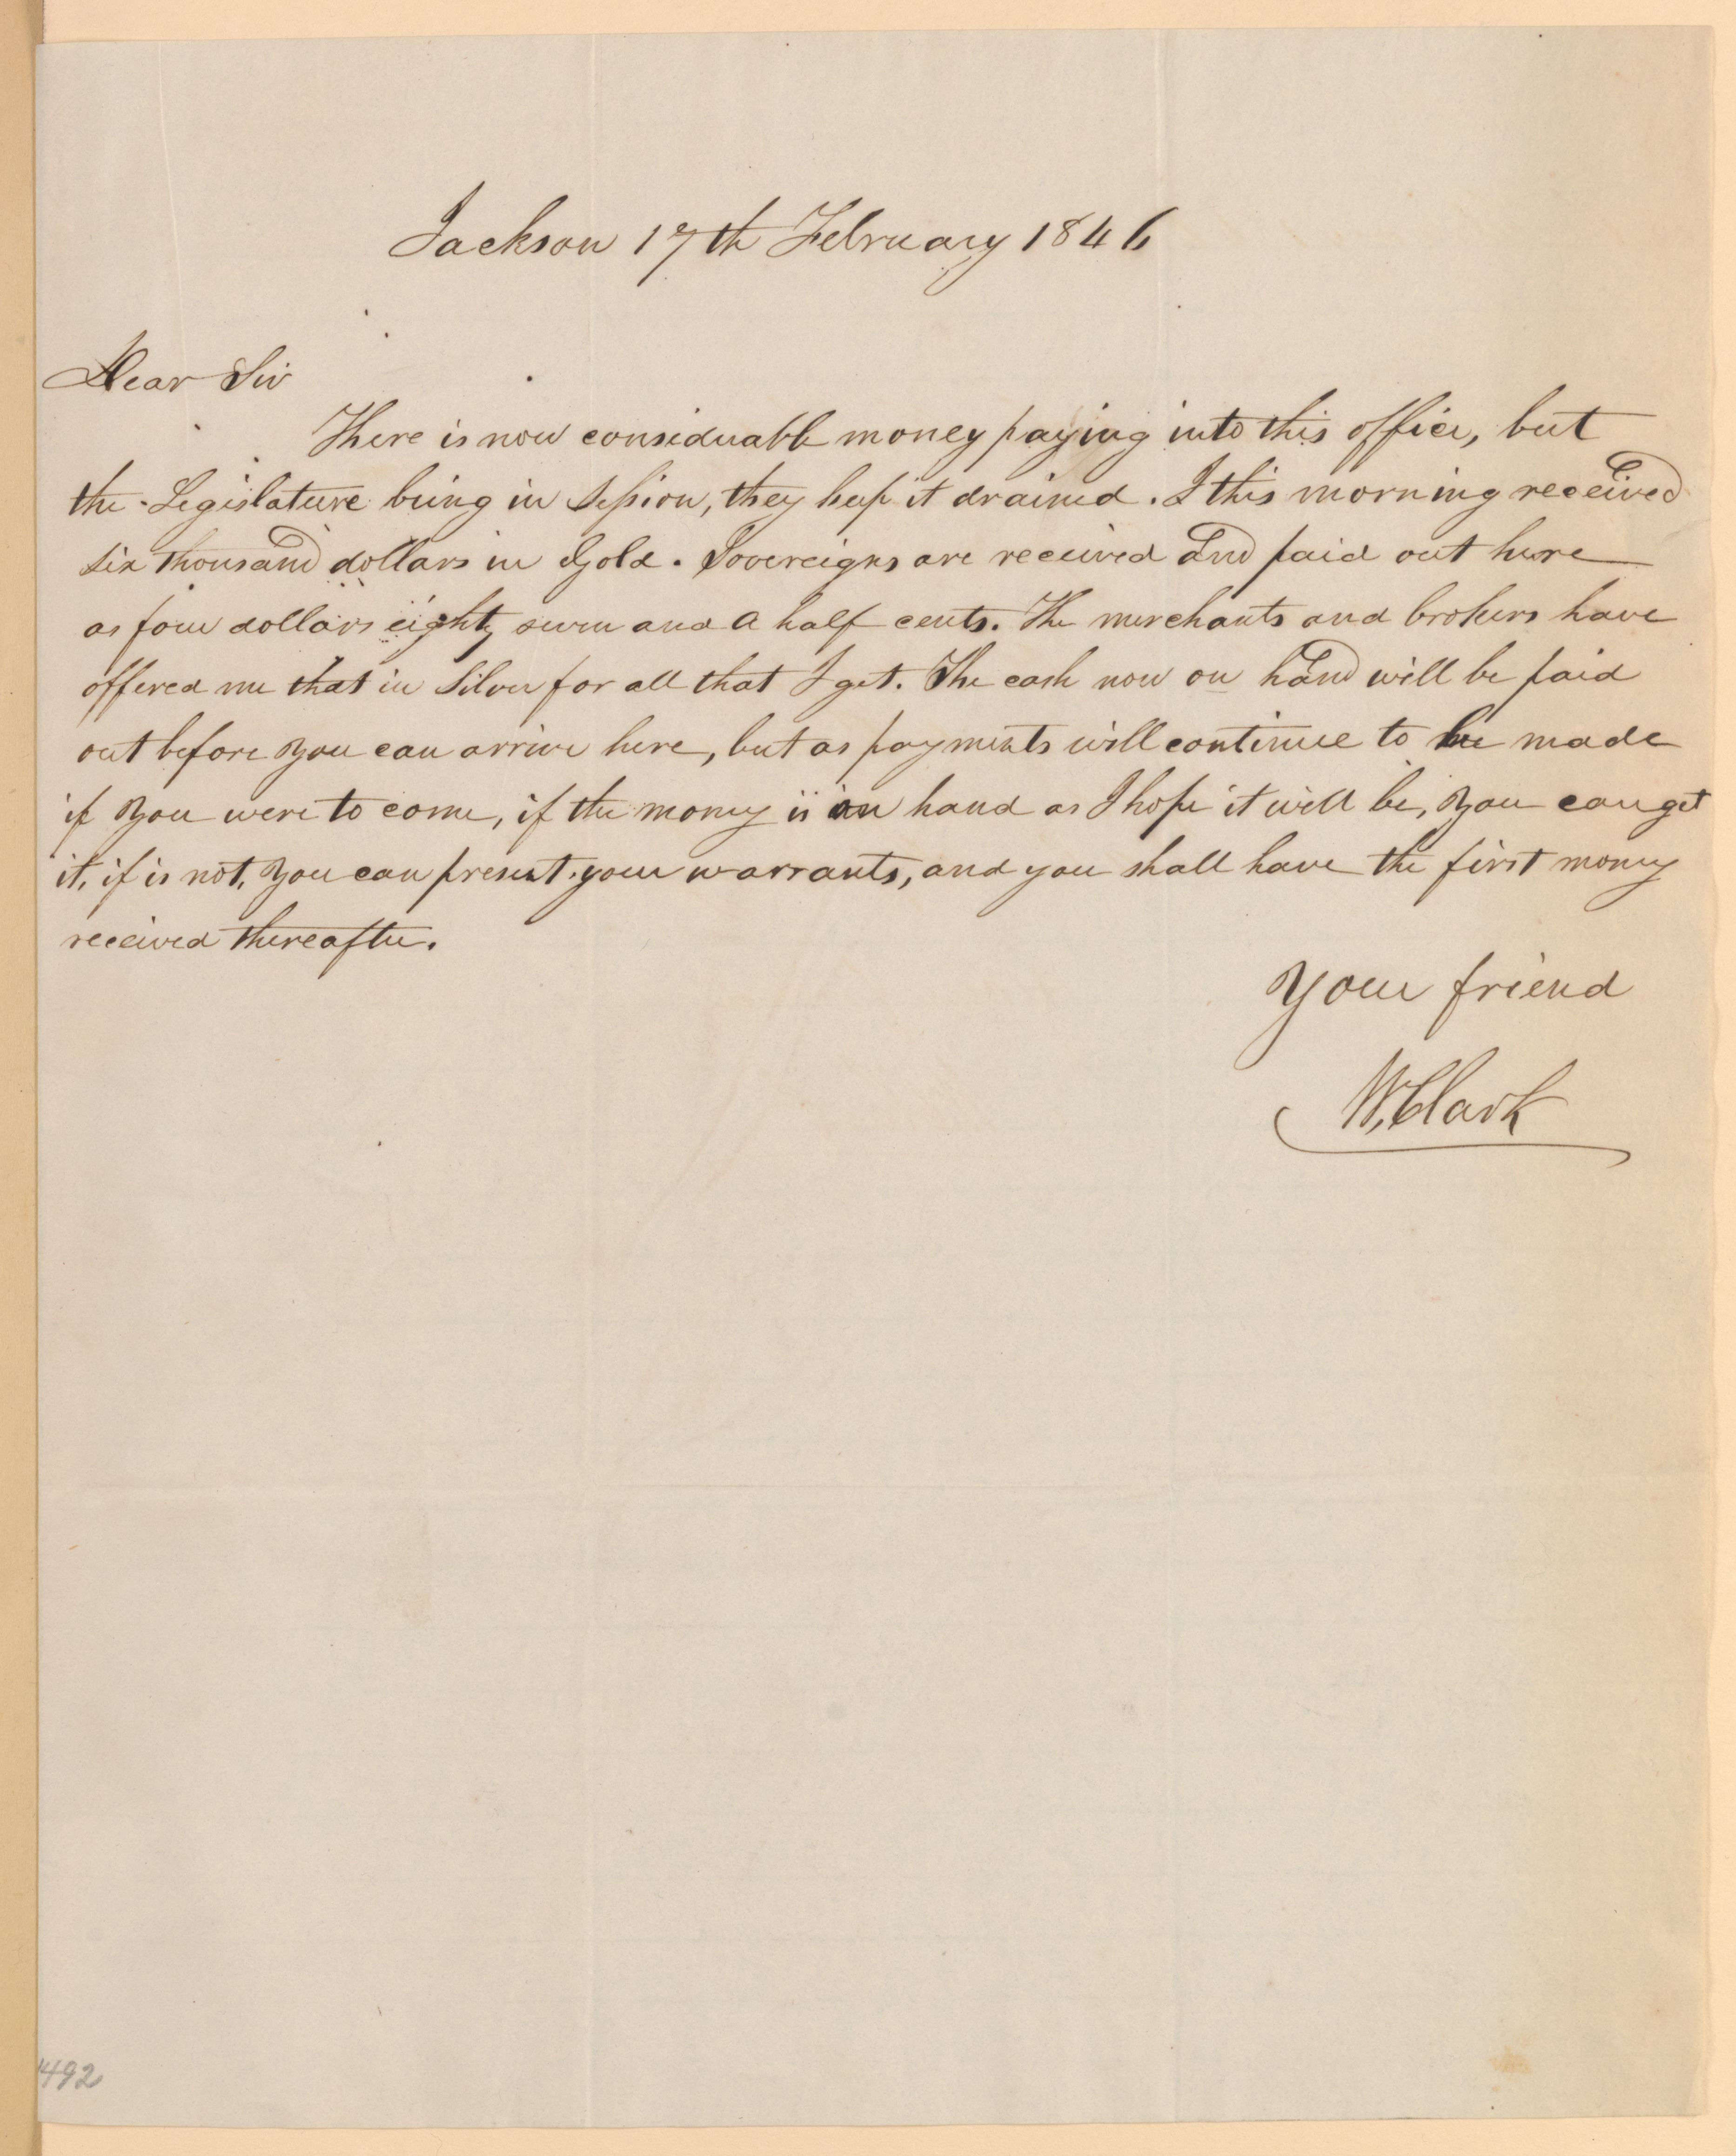 Jackson 17th February 1846
Dear Sir
There is now considerable money paying into this office, but
the Legislature being in Session, they keep it drained. I this morning received
six thousand dollars in Gold. Sovereigns are received and paid out here
as four dollars eighty seven and a half cents. The merchants and brokers have
offered me that in Silver for all that I get. The cash now on hand will be paid
out before you can arrive here, but as payments will continue to be made
if you were to come, if the money is on hand as I hope it will be, you can get
it, if is not, you can present your warrants, and you shall have the first money
received thereafter.
Your friend
W. Clark
492